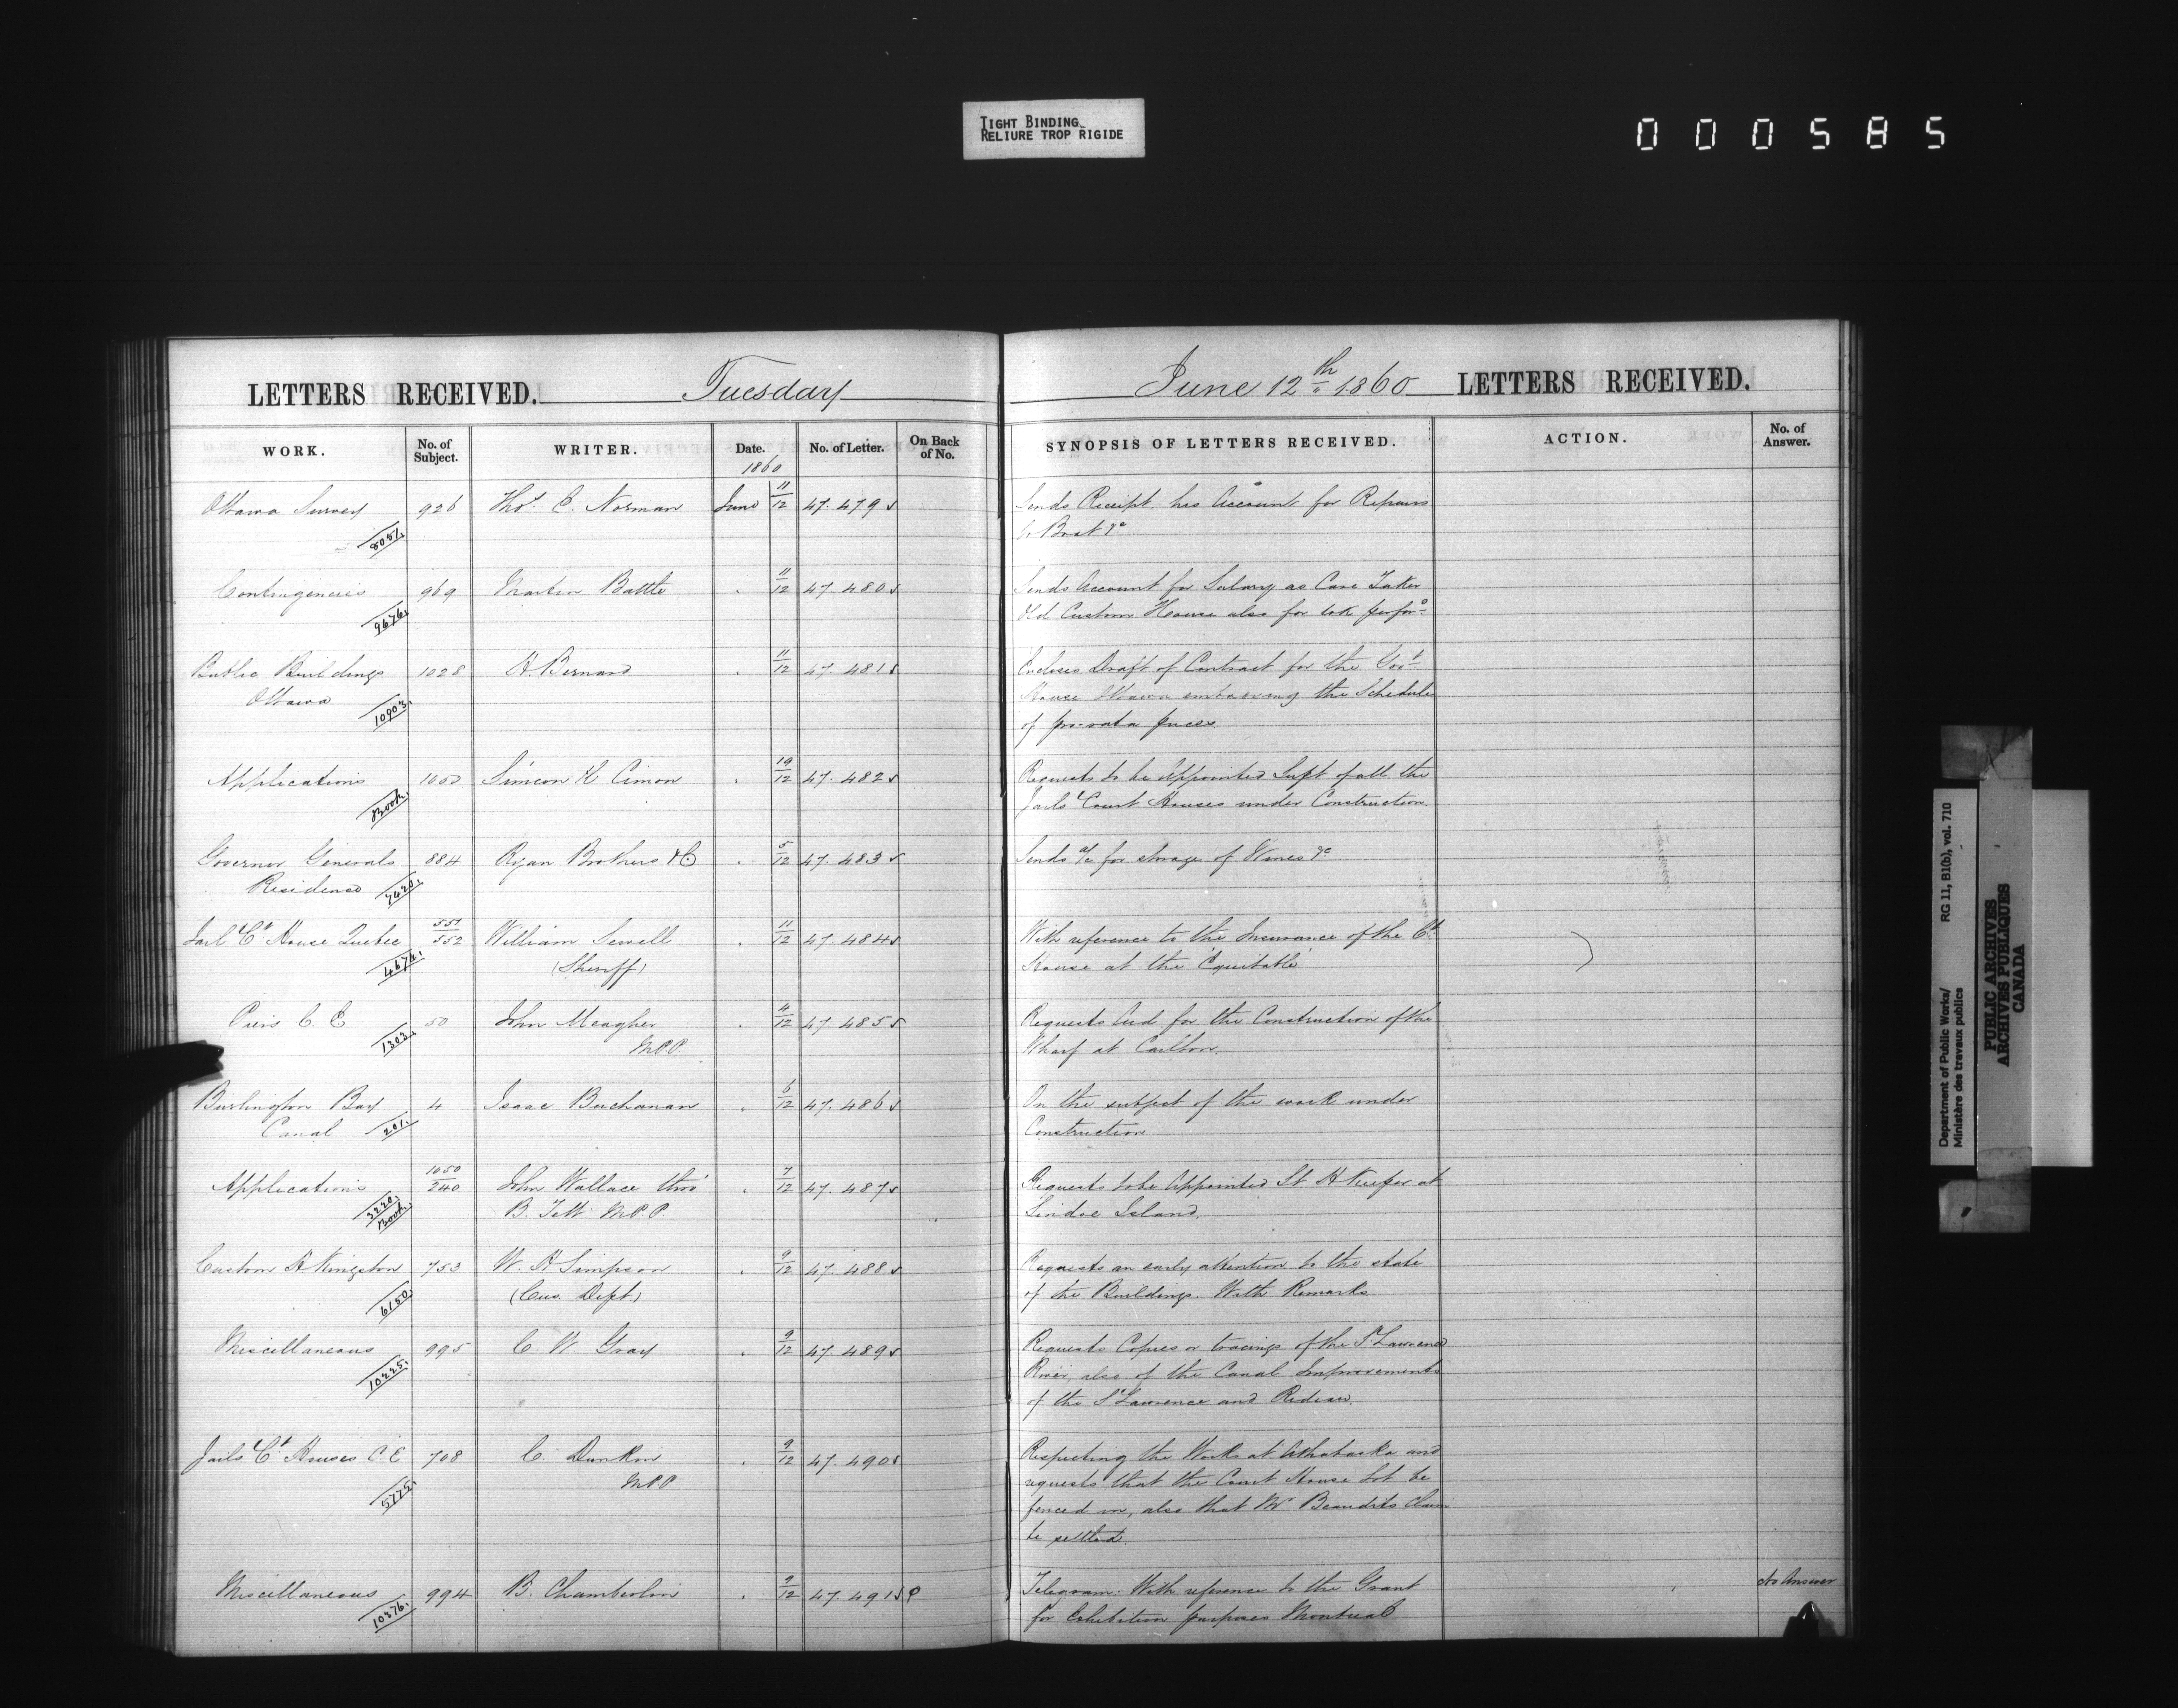 TIGHT BINDING
RELIURE TROP RIGIDE
000585
LETTERS RECEIVED. Tuesday
June 12th 1860 LETTERS RECEIVED.
WORK. No. of Subject. WRITER. Date. No. of Letter. On Back of No. SYNOPSIS OF LETTERS RECEIVED. ACTION. No. of Answer.
1860
Ottawa Survey 926 Thos. C. Norman June 11/12 47.479 Sends Receipt his Account for Repairs
8051 to Boat &c
Contingencies 969 Martin Battle 11/12 47.480 Sends Account for Salary as Care Taker
9676 Old Custom House also for
Public Buildings 1028 H. Bernard 11/12 47.481 Encloses Draft of Contract for the Govt
Ottawa House Ottawa embracing the Schedule
10903 of pro-rata prices.
Applications 1050 Simeon X Cimon 19/12 47.482 Requests to be Appointed Supt of all the
Book Jails & Court Houses under Construction
Governor Generals 884 Ryan Brothers & Co 5/12 47.483 Sends a/c for storage of Wines &c
Residence 7420
Jail & Ct House Quebec 551/552 William Sewell 11/12 47.484 With reference to the Insurance of the Ct
4674 (Sheriff) House at the Equitable
Piers C. E 50 John Meagher 4/12 47.485 Requests Aid for the Construction of the
1303 M.P.P. Wharf at Carlton.
Burlington Bay 4 Isaac Buchanan 6/12 47.486 On the subject of the work under
Canal 201 Construction
Applications 1050/240 John Wallace thro' 7/12 47.487 Requests to be Appointed Lt H Keeper at
3220 Book B. Tett M.P.P. Lindoe Island.
Custom H Kingston 753 W. H Simpson 9/12 47.488 Requests an early attention to the state
6150 (Cus. Dept) of the Buildings. With Remarks
Miscellaneous 995 C. W. Gray 9/12 47.489 Requests Copies or tracings of the St Lawrence
10225 River also of the Canal Improvements
of the St Lawrence and Rideau.
Jails & Ct Houses C.E 708 C. Dunkin 9/12 47.490 Respecting the Works at Athabaska and
5775 M.P.P requests that the Court House Lot be
fenced in, also that Mr Beaudets Claim
be settled.
Miscellaneous 994 B. Chamberlin 9/12 47.491 Telegram: With reference to the Grant No Answer
10276 for Exhibition purposes Montreal
Department of Public Works/ RG 11, B1(b), vol. 710
Ministère des travaux publics
PUBLIC ARCHIVES
ARCHIVES PUBLIQUES
CANADA